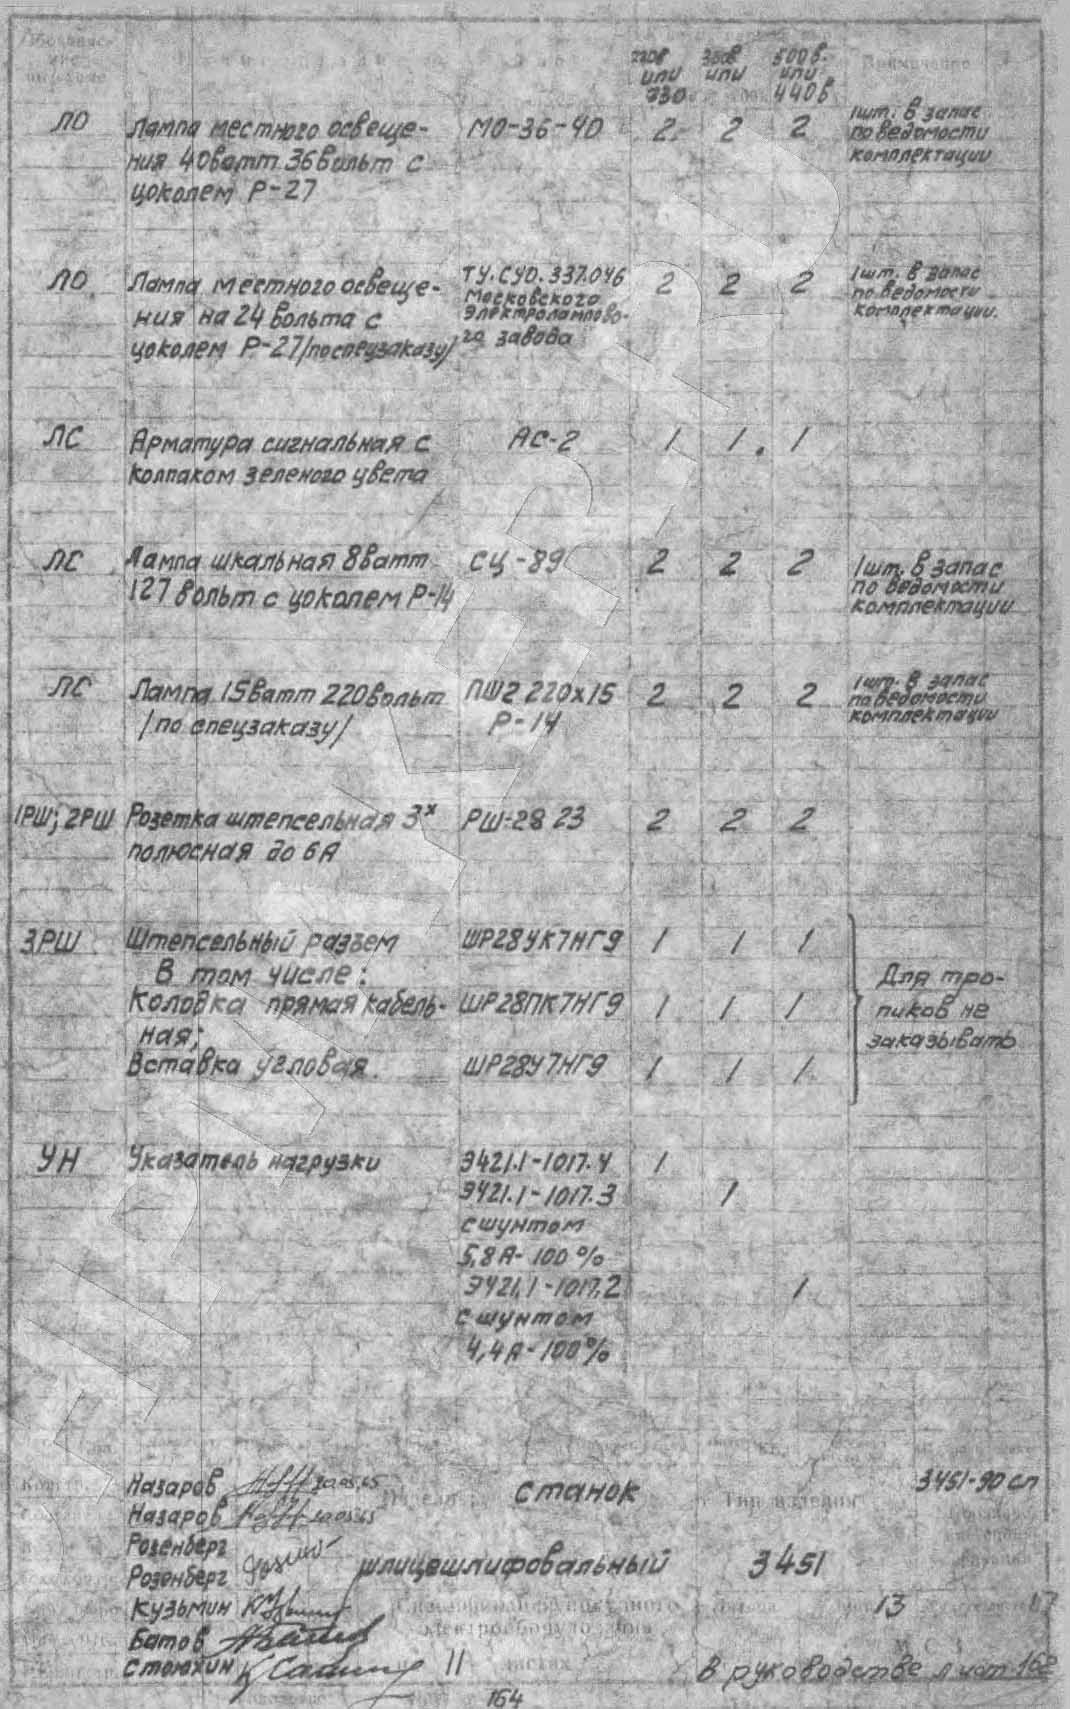 220в 380в 500в.
или или или
230 440в
Примечание
ЛО Лампа местного освеще- МО-36-40 2 2 2 1шт. в запас
ния 40ватт 36вольт с по ведомости
цоколем Р-27 комплектации
ЛО Лампа местного освеще- ТУ.СУО.337.046 2 2 2 1шт. в запас
ния на 24 вольта с Московского по ведомости
цоколем Р-27/по спецзаказу/ электролампово- комплектации.
го завода
ЛС Арматура сигнальная с АС-2 1 1 1
колпаком зеленого цвета
ЛС Лампа шкальная 8ватт СЦ-89 2 2 2 1шт. в запас
127 вольт с цоколем Р-14 по ведомости
комплектации
ЛС Лампа 15ватт 220вольт ПШ2 220х15 2 2 2 1шт. в запас
/по спецзаказу/ Р-14 по ведомости
комплектации
1РШ; 2РШ Розетка штепсельная 3х РШ-28 23 2 2 2
полюсная до 6А
3РШ Штепсельный разъем ШР28УК7НГ9 1 1 1
В том числе: Для тро-
Колодка прямая кабель- ШР28ПК7НГ9 1 1 1 пиков не
ная; заказывать
Вставка угловая. ШР28У7НГ9 1 1 1
УН Указатель нагрузки Э421.1-1017.4 1
Э421.1-1017.3 1
с шунтом
5,8А-100%
Э421.1-1017.2 1
с шунтом
4,4А-100%
Назаров 20.05.65 станок 3451-90 сп
Назаров Тип изделия
Розенберг
Розенберг шлицешлифовальный 3451
Кузьмин 13 17
Батов
Стоюхин 11 листах В руководстве лист 162
164